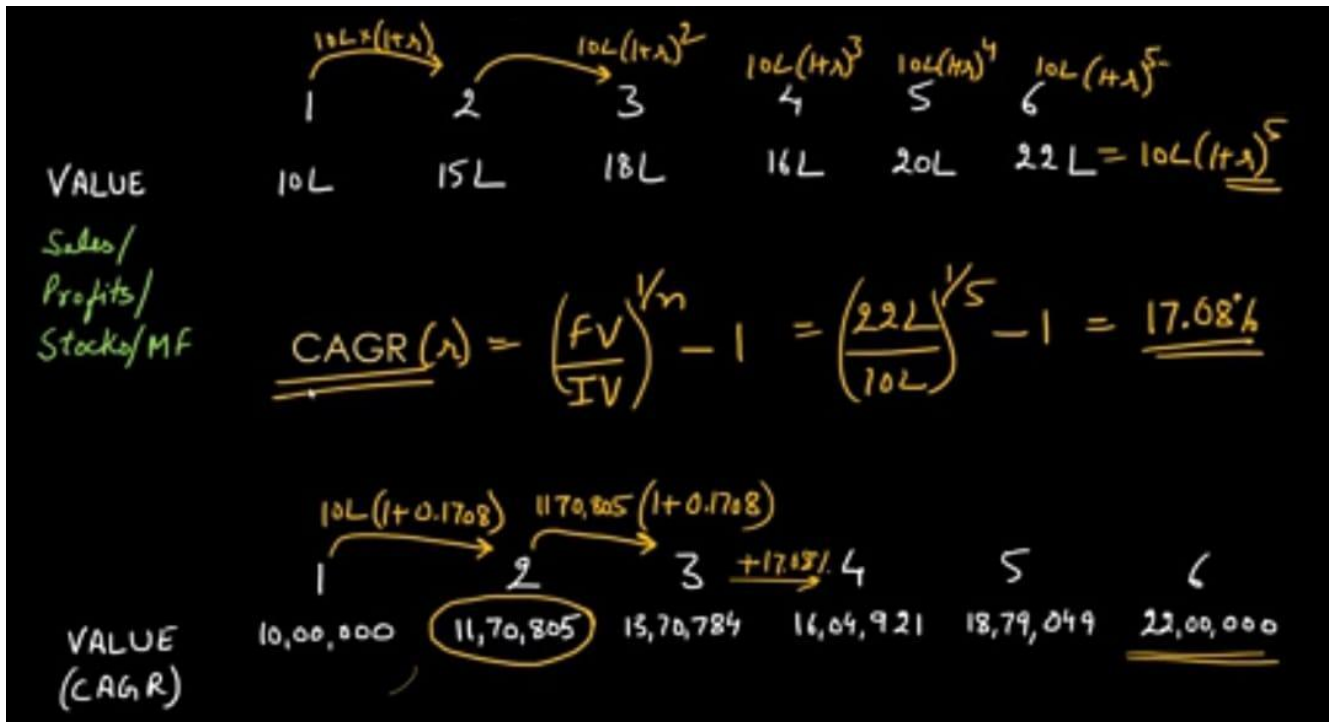 10L×(1+r) 10L(1+r)^2 10L(1+r)^3 10L(1+r)^4 10L(1+r)^5
1 2 3 4 5 6
VALUE 10L 15L 18L 16L 20L 22L = 10L(1+r)^5
Sales/
Profits/
Stocks/MF
CAGR (r) = (FV/IV)^1/n - 1 = (22L/10L)^1/5 - 1 = 17.08%
10L(1+0.1708) 1170,805(1+0.1708)
1 2 3 +17.08% 4 5 6
VALUE 10,00,000 11,70,805 13,70,784 16,04,921 18,79,049 22,00,000
(CAGR)